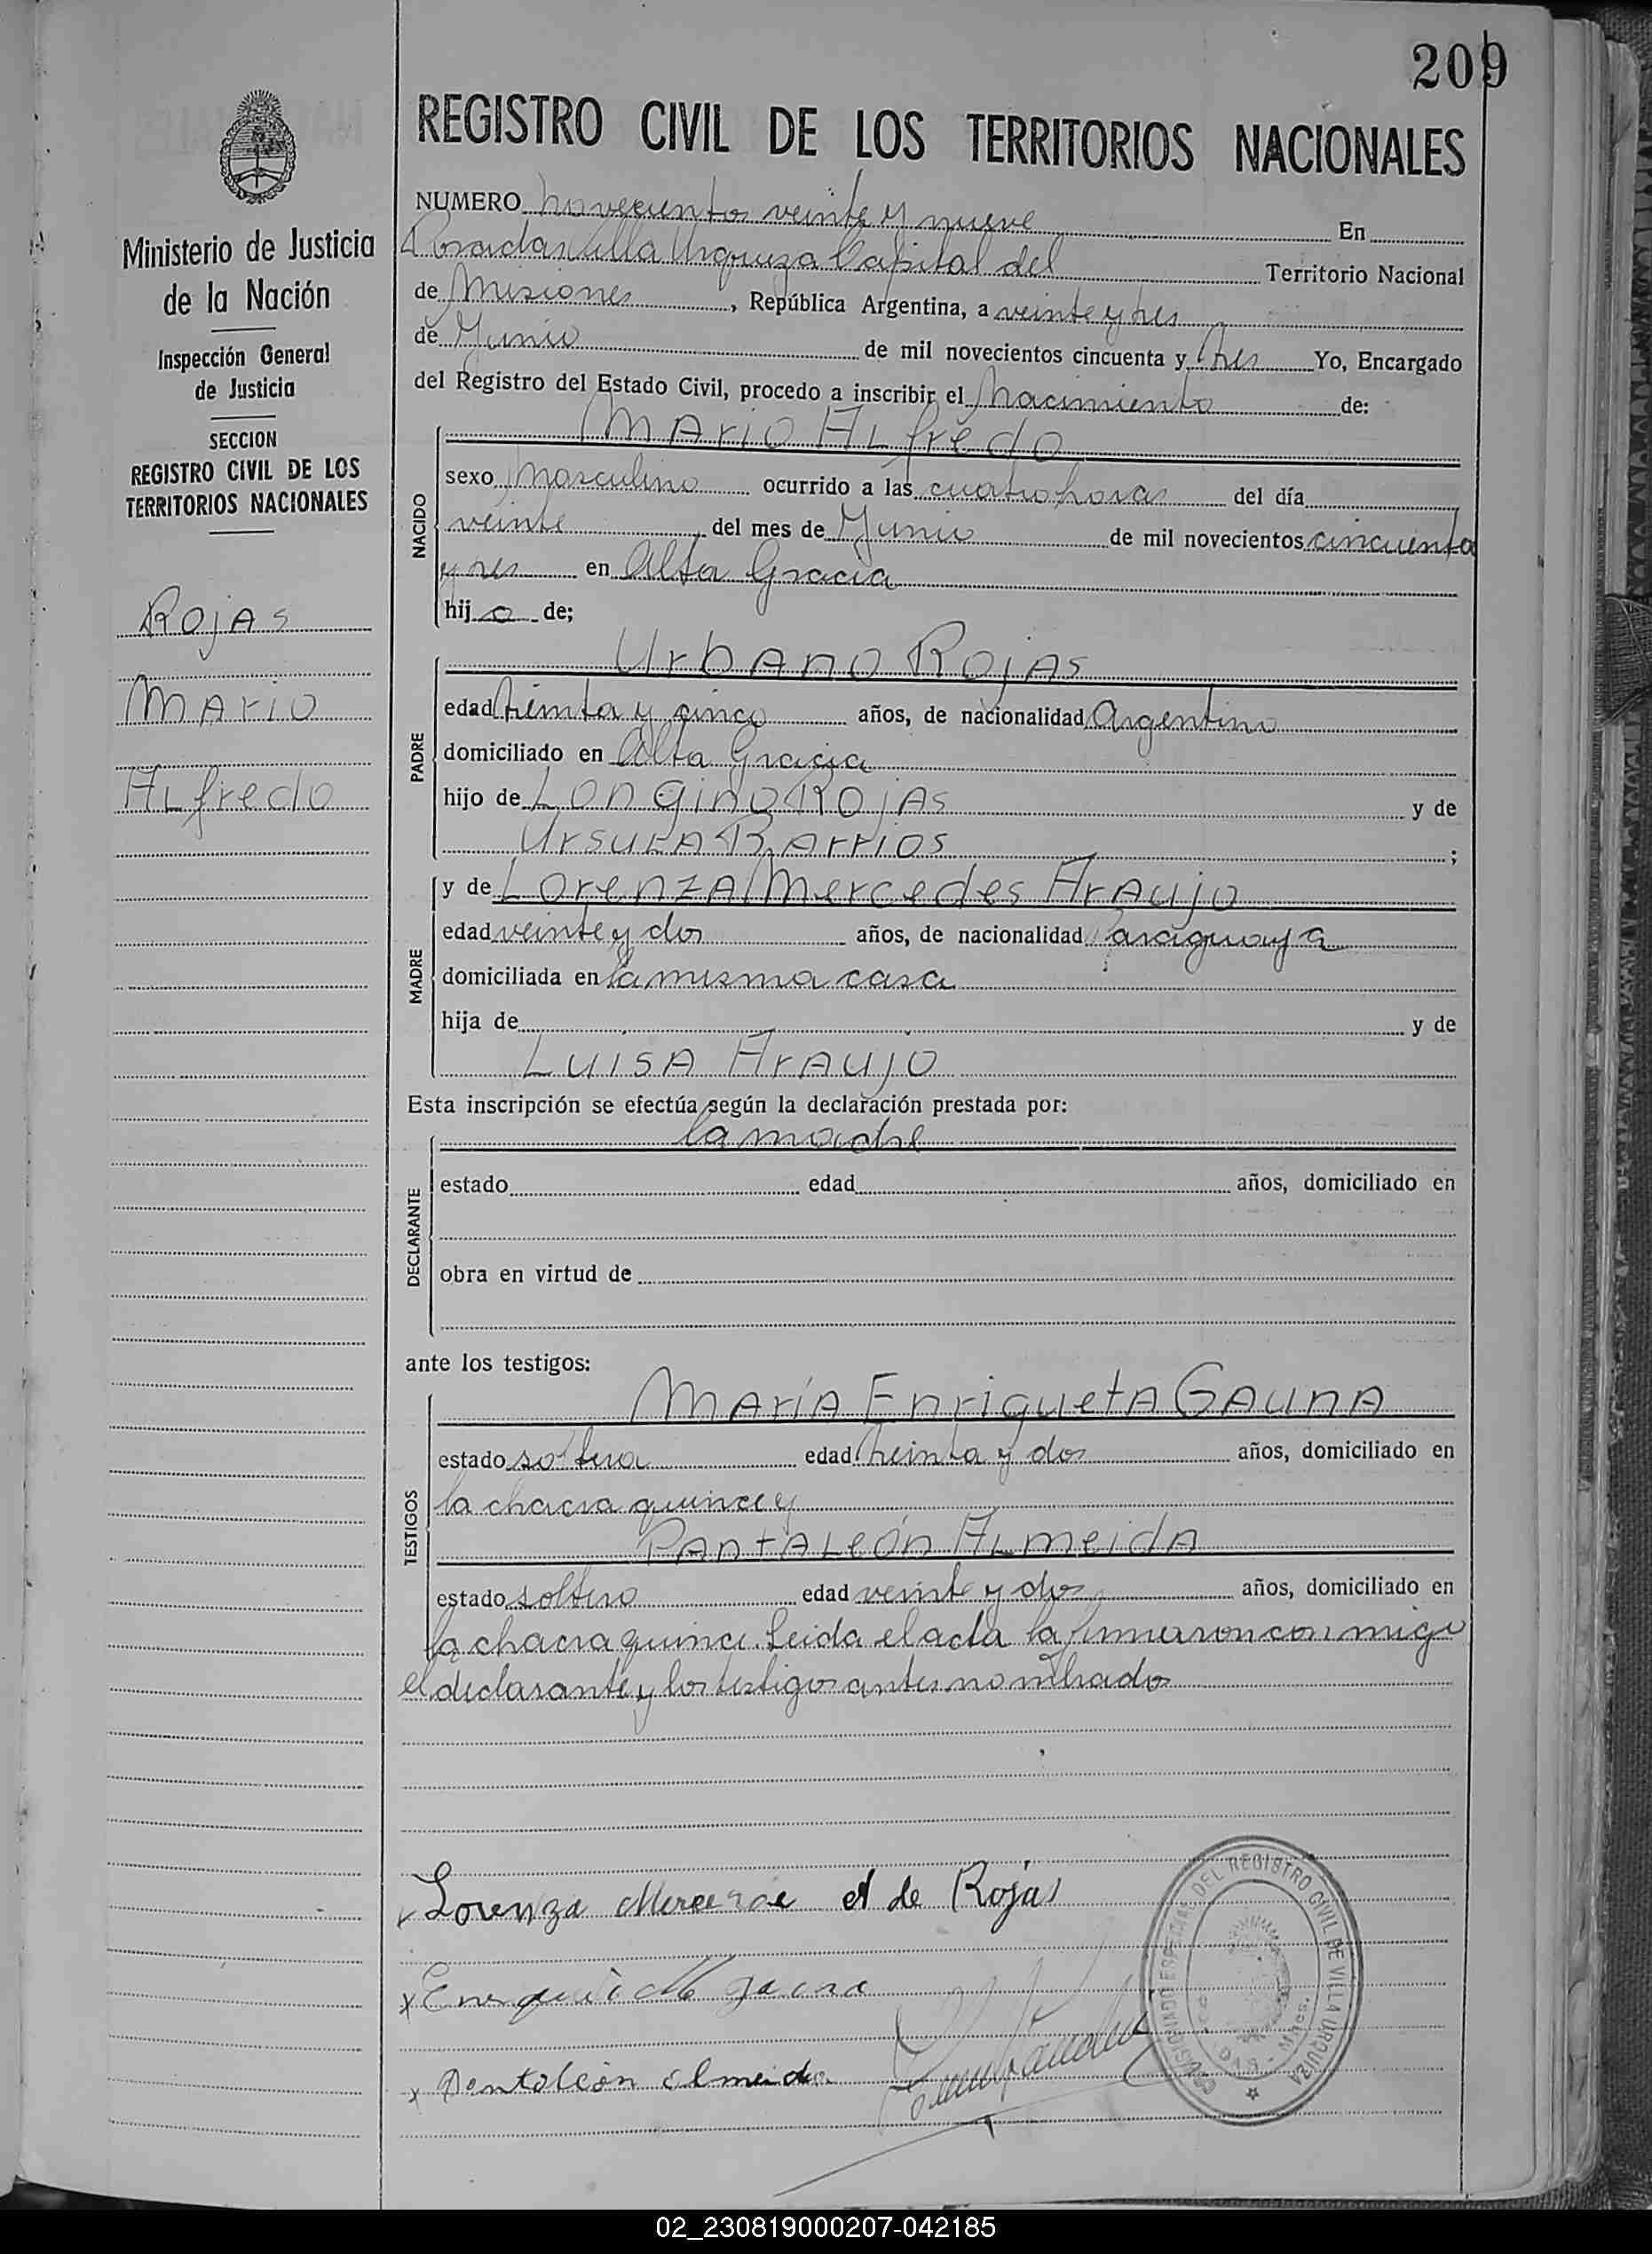 209
REGISTRO CIVIL DE LOS TERRITORIOS NACIONALES
Ministerio de Justicia
de la Nación
Inspección General
de Justicia
SECCION
REGISTRO CIVIL DE LOS
TERRITORIOS NACIONALES
Rojas
Mario
Alfredo
NUMERO novecientos veinte y nueve En
Posadas Villa Urquiza Capital del Territorio Nacional
de Misiones, República Argentina, a veinte y tres
de Junio de mil novecientos cincuenta y tres Yo, Encargado
del Registro del Estado Civil, procedo a inscribir el Nacimiento de:
NACIDO
Mario Alfredo
sexo Masculino ocurrido a las cuatro horas del día
veinte del mes de Junio de mil novecientos cincuenta
y tres en Alta Gracia
hijo de;
PADRE
Urbano Rojas
edad treinta y cinco años, de nacionalidad Argentino
domiciliado en Alta Gracia
hijo de Longino Rojas y de
Ursula Barrios ;
MADRE
y de Lorenza Mercedes Araujo
edad veinte y dos años, de nacionalidad Paraguaya
domiciliada en la misma casa
hija de y de
Luisa Araujo
Esta inscripción se efectúa según la declaración prestada por:
DECLARANTE
la madre
estado edad años, domiciliado en
obra en virtud de
ante los testigos:
TESTIGOS
María Enriqueta Gauna
estado soltera edad treinta y dos años, domiciliado en
la chacra quince y
Pantaleón Almeida
estado soltero edad veinte y dos años, domiciliado en
la chacra quince. Leida el acta la firmaron conmigo
el declarante y los testigos antes nombrados
Lorenza Mercede A de Rojas
x M Gauna
x Pentoleón Almeida
DEL REGISTRO CIVIL DE VILLA URQUIZA
02_230819000207-042185